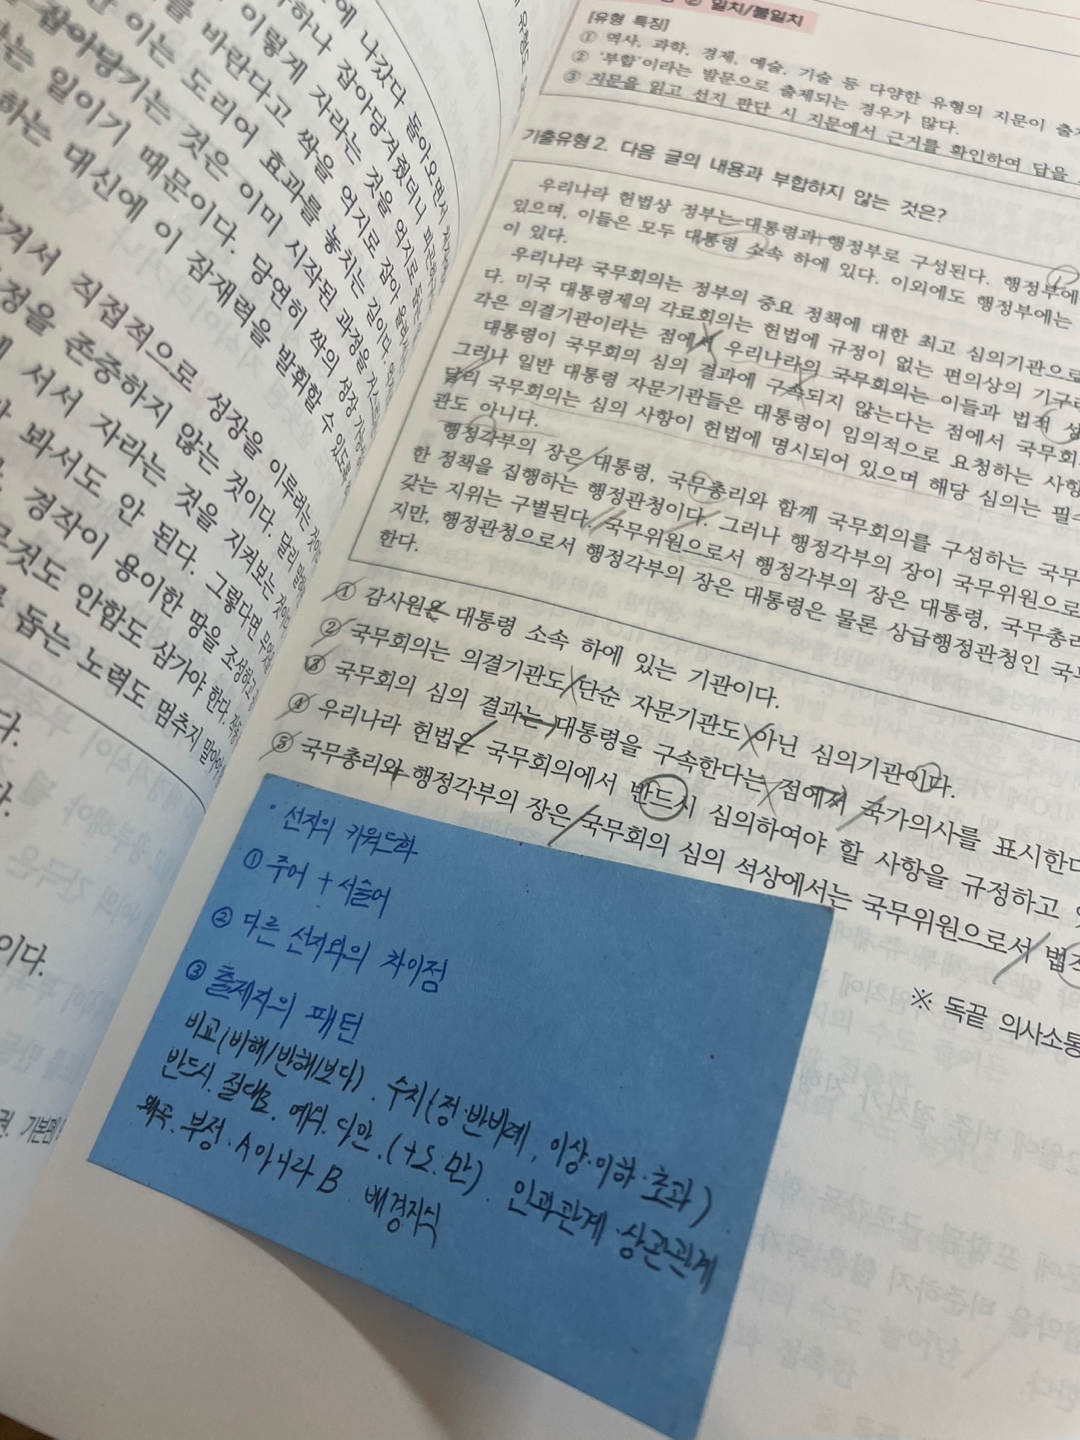 에 나갔다 돌아오면서
하나 잡아당겨줬더니
이렇게 자라는 것을 억지로
를 바란다고 싹을 억지로 잡아
이는 도리어 효과를 놓치는 길이다.
잡아당기는 것은 이미 시작된 과정을
는 일이기 때문이다. 당연히 싹의 성장
하는 대신에 이 잠재력을 발휘할 수 있도록
겨서 직접적으로 성장을 이루려는 것이
정을 존중하지 않는 것이다. 달리 말해
서서 자라는 것을 지켜보는 것이다
봐서도 안 된다. 그렇다면 무엇을
경작이 용이한 땅을 조성하고
무것도 안함도 삼가야 한다.
돕는 노력도 멈추지 말아야
다.
이다.
권. 기본편
② 일치/불일치
[유형 특징]
① 역사, 과학, 경제, 예술, 기술 등 다양한 유형의 지문이 출제
② '부합'이라는 발문으로 출제되는 경우가 많다.
③ 지문을 읽고 선지 판단 시 지문에서 근거를 확인하여 답을
기출유형 2. 다음 글의 내용과 부합하지 않는 것은?
우리나라 헌법상 정부는 대통령과 행정부로 구성된다. 행정부에
있으며, 이들은 모두 대통령 소속 하에 있다. 이외에도 행정부에는
이 있다.
우리나라 국무회의는 정부의 중요 정책에 대한 최고 심의기관으로
다. 미국 대통령제의 각료회의는 헌법에 규정이 없는 편의상의 기구
각은 의결기관이라는 점에서 우리나라의 국무회의는 이들과 법적 성
대통령이 국무회의 심의 결과에 구속되지 않는다는 점에서 국무회
그러나 일반 대통령 자문기관들은 대통령이 임의적으로 요청하는 사항
달리 국무회의는 심의 사항이 헌법에 명시되어 있으며 해당 심의는 필수
관도 아니다.
행정각부의 장은 대통령, 국무총리와 함께 국무회의를 구성하는 국무
한 정책을 집행하는 행정관청이다. 그러나 행정각부의 장이 국무위원으로
갖는 지위는 구별된다. 국무위원으로서 행정각부의 장은 대통령, 국무총리
지만, 행정관청으로서 행정각부의 장은 대통령은 물론 상급행정관청인 국무
한다.
① 감사원은 대통령 소속 하에 있는 기관이다.
② 국무회의는 의결기관도 단순 자문기관도 아닌 심의기관이다.
③ 국무회의 심의 결과는 대통령을 구속한다는 점에서 국가의사를 표시한다
④ 우리나라 헌법은 국무회의에서 반드시 심의하여야 할 사항을 규정하고
⑤ 국무총리와 행정각부의 장은 국무회의 심의 석상에서는 국무위원으로서 법적
※ 독끝 의사소통
· 선지의 키워드화
① 주어 + 서술어
② 다른 선지와의 차이점
③ 출제자의 패턴
비교(비해/반해/보다). 수치(정·반비례, 이상·이하·초과)
반드시. 절대로. 예외. 다만. (+도. 만). 인과관계·상관관계
왜곡. 부정. A아니라 B. 배경지식